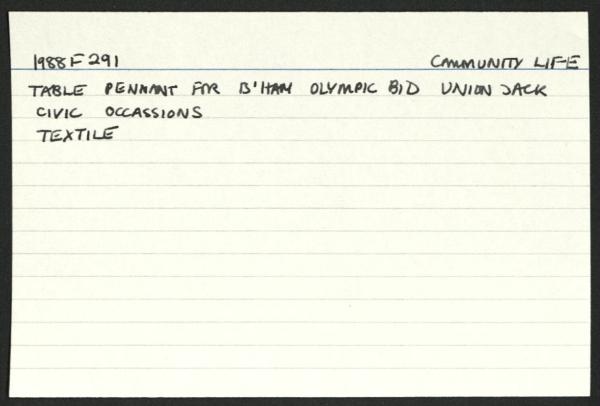 1988 F 291 COMMUNITY LIFE
TABLE PENNANT FOR B'HAM OLYMPIC BID UNION JACK
CIVIC OCCASSIONS
TEXTILE